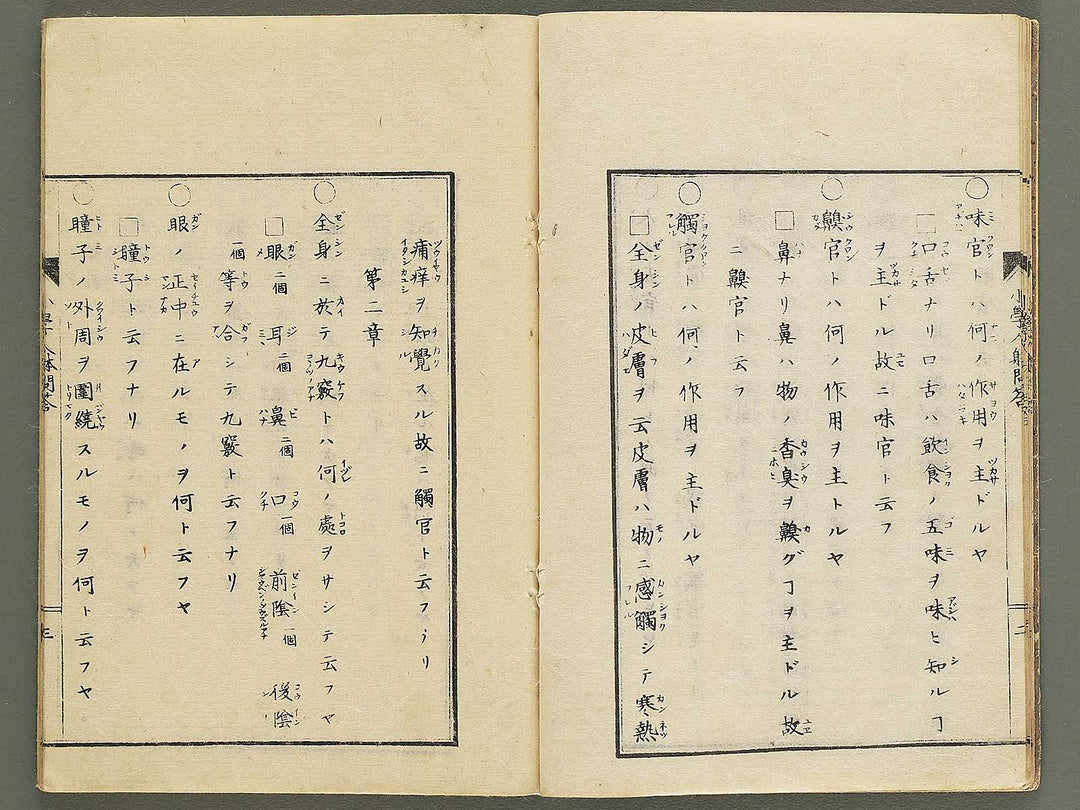 ○味官トハ何ノ作用ヲ主ドルヤ
□口舌ナリ口舌ハ飲食ノ五味ヲ味ヒ知ルヿ
ヲ主ドル故ニ味官ト云フ
○齅官トハ何ノ作用ヲ主トルヤ
□鼻ナリ鼻ハ物ノ香臭ヲ齅グヿヲ主ドル故
ニ齅官ト云フ
○觸官トハ何ノ作用ヲ主ドルヤ
□全身ノ皮膚ヲ云皮膚ハ物ニ感觸シテ寒熱
痛痒ヲ知覺スル故ニ觸官ト云フナリ
第二章
○全身ニ於テ九竅トハ何ノ處ヲサシテ云フヤ
□眼二個 耳二個 鼻二個 口一個 前陰一個 後陰
一個等ヲ合シテ九竅ト云フナリ
○眼ノ正中ニ在ルモノヲ何ト云フヤ
□瞳子ト云フナリ
○瞳子ノ外周ヲ圍繞スルモノヲ何ト云フヤ
三